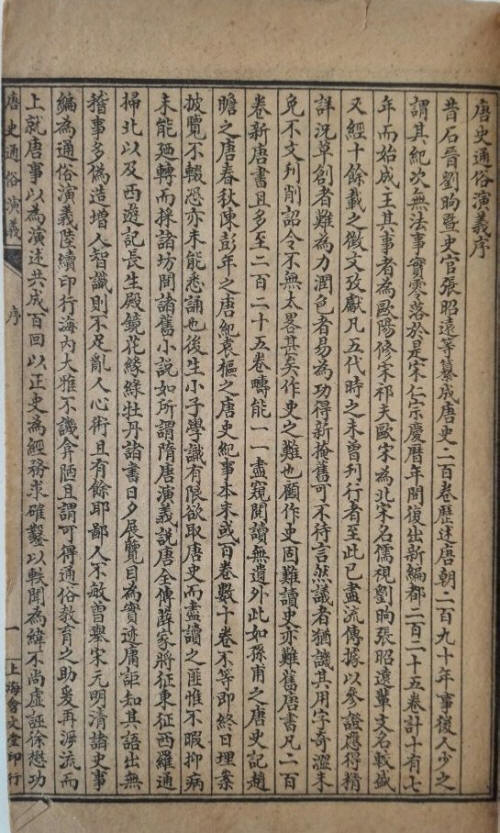 唐史通俗演義序
昔石晉劉昫暨史官張昭遠等纂成唐史二百卷歷述唐朝二百九十年事後人少之
謂其紀次無法事實零落於是宋仁宗慶曆年間復出新編都二百二十五卷計十有七
年而始成主其事者為歐陽修宋祁夫歐宋為北宋名儒視劉昫張昭遠輩文名較盛
又經十餘載之徵文攷獻凡五代時之未曾刊行者至此已盡流傳據以參證應得精
詳況草創者難為力潤色者易為功得新掩舊可不待言然議者猶譏其用字奇澀未
免不文刋削詔令不無太畧甚矣作史之難也顧作史固難讀史亦難舊唐書凡二百
卷新唐書且多至二百二十五卷疇能一一盡窺閱讀無遺外此如孫甫之唐史記趙
瞻之唐春秋陳彭年之唐紀袁樞之唐史紀事本末或百卷數十卷不等即終日埋案
披覽不輟恐亦未能悉誦也後生小子學識有限欲取唐史而盡讀之匪惟不暇抑病
未能廻轉而採諸坊間諸舊小說如所謂隋唐演義說唐全傳薛家將征東征西羅通
掃北以及西遊記長生殿鏡花緣綠牡丹諸書日夕展覽目為實迹庸詎知其語出無
稽事多偽造增人智識則不足亂人心術且有餘耶鄙人不敏曾舉宋元明清諸史事
編為通俗演義陸續印行海內大雅不譏弇陋且謂可得通俗教育之助爰再溯流而
上就唐事以為演述共成百回以正史為經務求確鑿以軼聞為緯不尚虛誣徐懋功
唐史通俗演義
序
一
上海會文堂印行